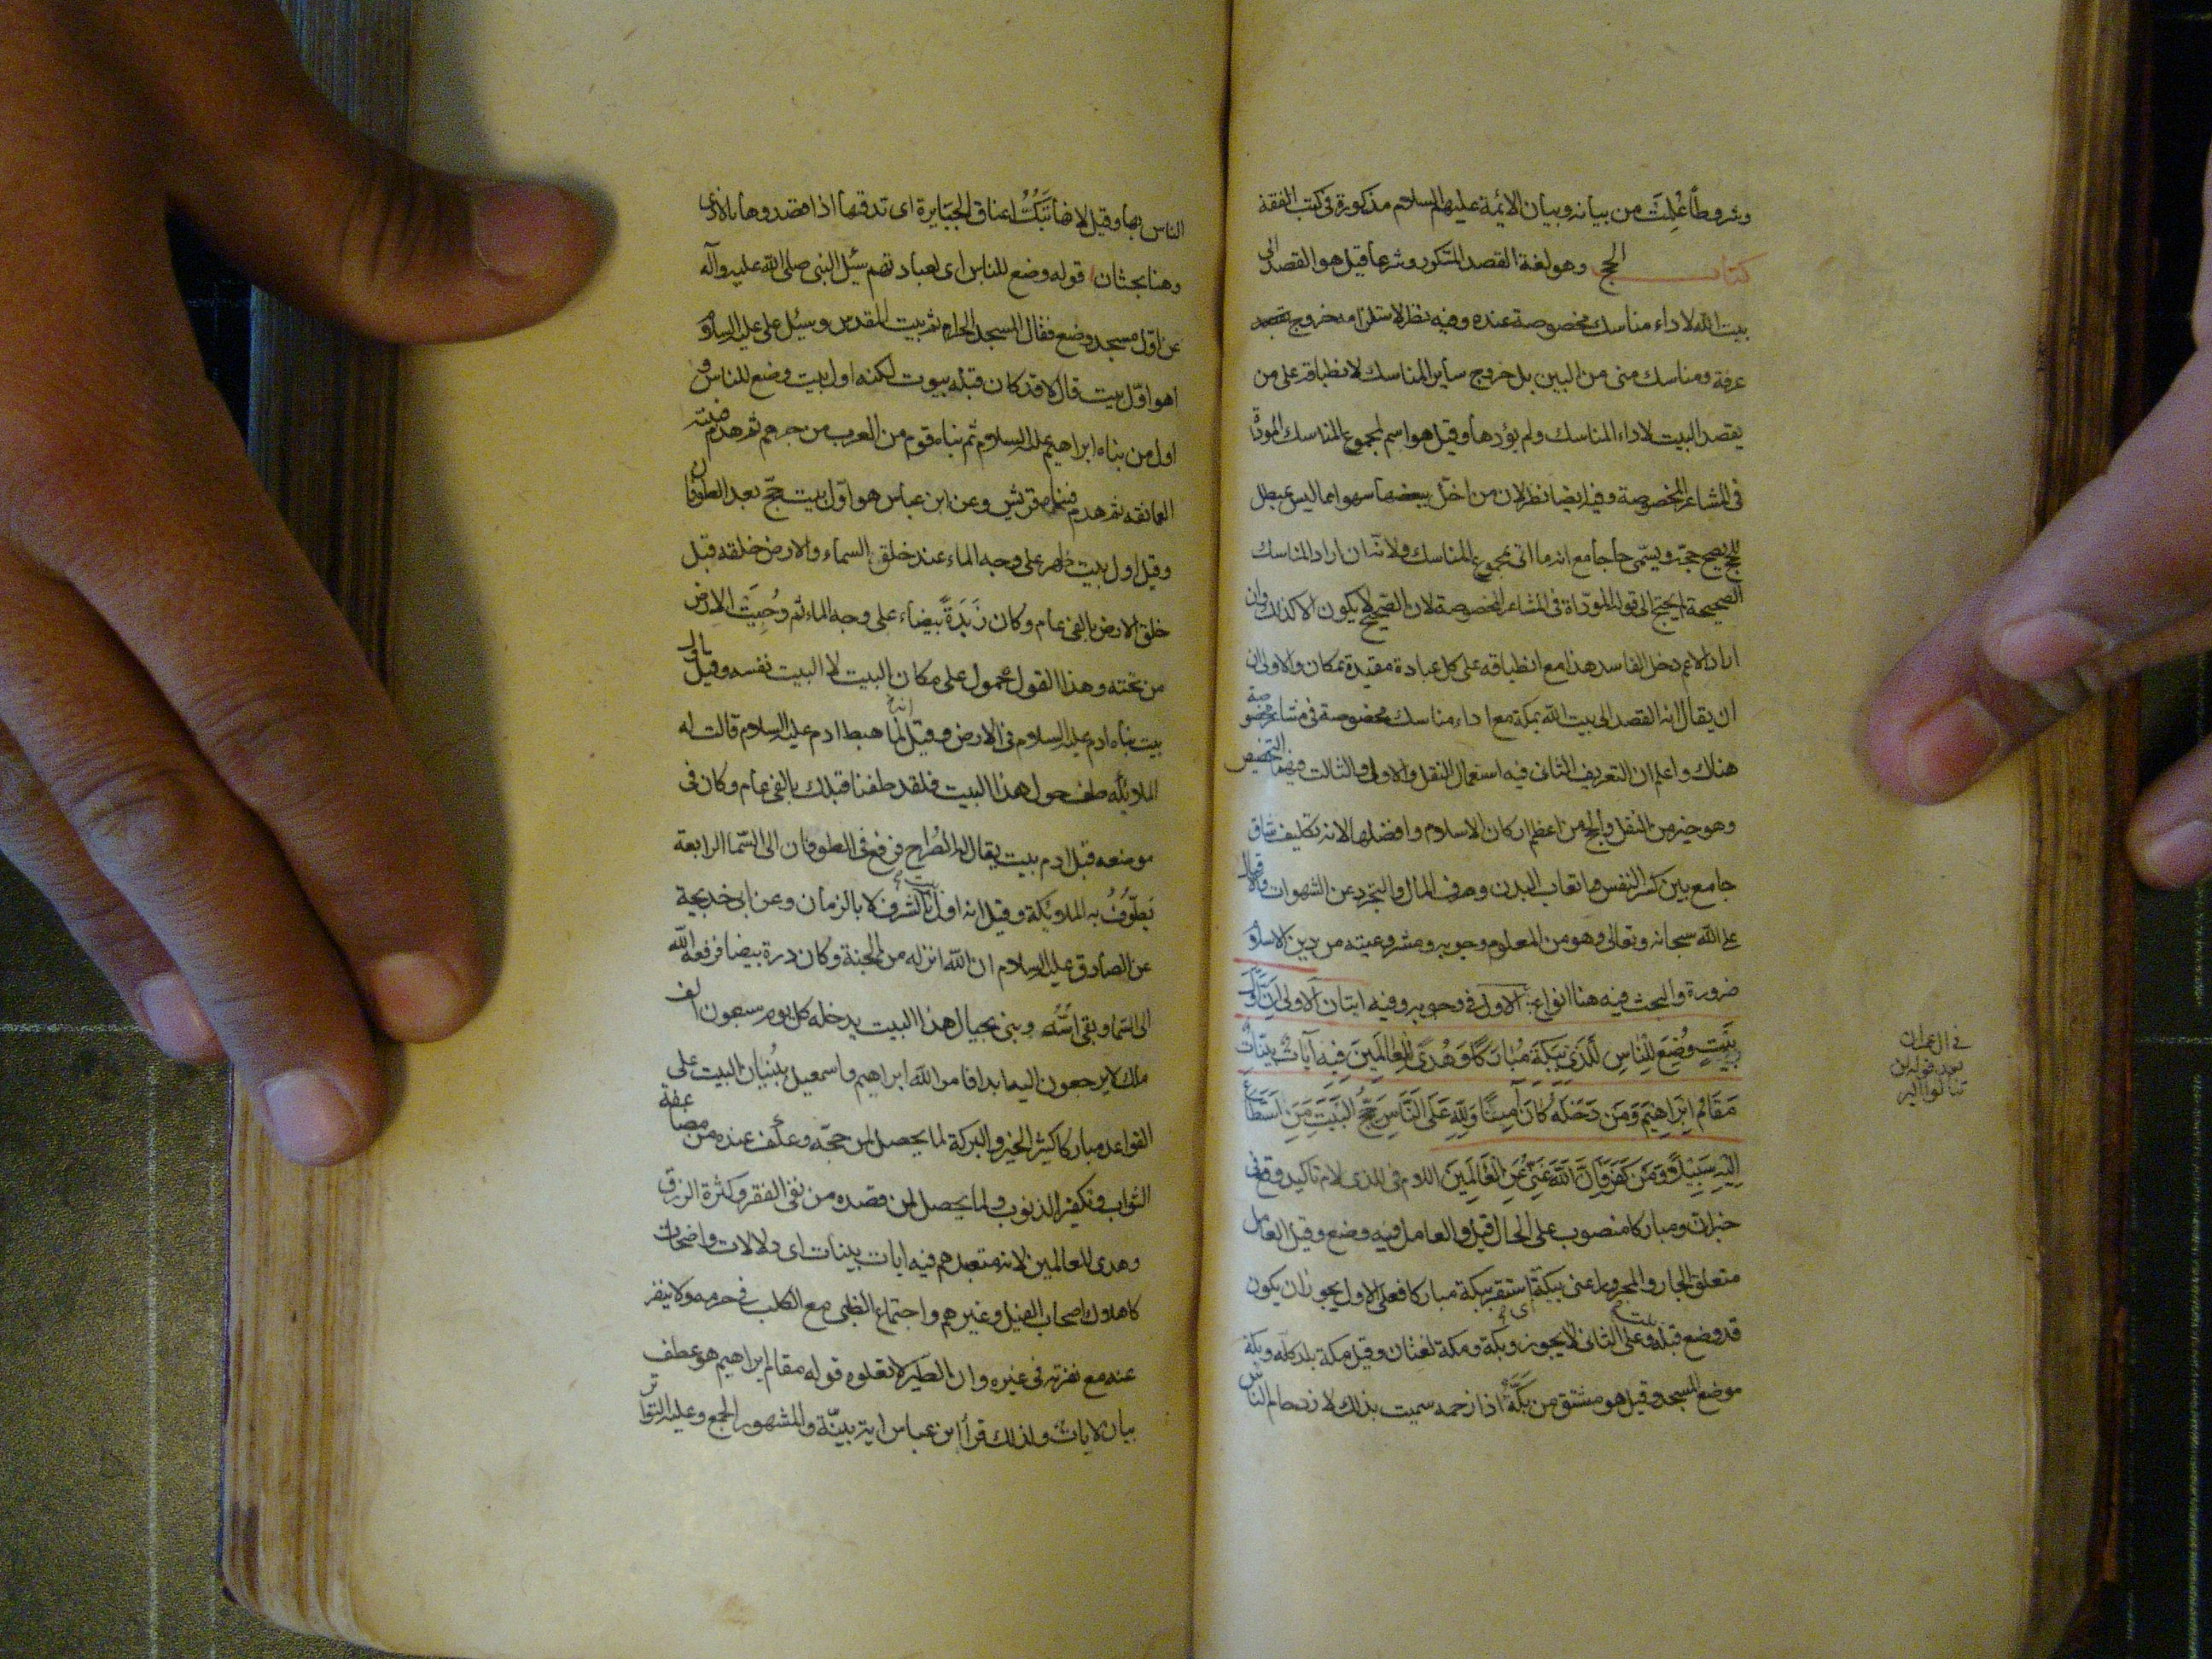 وشروطاً عُلِمَت من بيانه وبيان الائمة عليهم السلام مذكورة فى كتب الفقه
كتاب الحج وهو لغة القصد المتكرر وشرعا قيل هو القصد الى
بيت الله لاداء مناسك مخصوصة عنده وفيه نظر لاستلزامه خروج
عرفة ومناسك منى من البين بل خروج ساير المناسك لانطباقه على من
يقصد البيت لاداء المناسك ولم يؤدها وقيل هو اسم لمجموع المناسك المودّاة
فى المشاعر المخصوصة وفيه ايضا نظر لان من اخلّ ببعضها سهوا مما ليس بمبطل
للحج يصح حجّه ويسمّى حاجا مع انه ما اتى بمجموع المناسك ولانّه ان اراد المناسك
الصحيحة لم يحتج الى قوله المودّاة فى المشاعر المخصوصة لان الصحيح لا يكون الا كذلك وان
اراد الاعم دخل الفاسد هذا مع انطباقه على كل عبادة مقيدة بمكان والاولى
ان يقال انه القصد الى بيت الله بمكة مع اداء مناسك مخصوصة فى مشاعر مخصوصة
هناك واعلم ان التعريف الثانى فيه استعمال النقل والاول والثالث فيهما التخصيص
وهو خير من النقل والحج من اعظم اركان الاسلام وافضلها لانه تكليف شاق
جامع بين كسر النفس واتعاب البدن وصرف المال والتجرد عن الشهوات والاقبال
على الله سبحانه وتعالى وهو من المعلوم وجوبه ومشروعيته من دين الاسلام
ضرورة والبحث فيه هنا انواع الاول فى وجوبه وفيه ايتان الاولى اِنَّ اَوَّلَ
بَيْتٍ وُضِعَ لِلنَّاسِ لَلَّذِى بِبَكَّةَ مُبَارَكًا وَهُدًى لِلْعَالَمِينَ فِيهِ آيَاتٌ بَيِّنَاتٌ
مَقَامُ اِبْرَاهِيمَ وَمَن دَخَلَهُ كَانَ آمِنًا وَلِلّهِ عَلَى النَّاسِ حِجُّ الْبَيْتِ مَنِ اسْتَطَاعَ
اِلَيْهِ سَبِيلاً وَمَن كَفَرَ فَاِنَّ اللّهَ غَنِىٌّ عَنِ الْعَالَمِينَ اللام فى للذى لام تاكيد وقع فى
خبر ان ومباركا منصوب على الحال قيل والعامل فيه وضع وقيل العامل
متعلق الجار والمجرور اعنى ببكة اى استقر ببكة مباركا فعلى الاول يجوز ان يكون
قد وضع قبله بيت وعلى الثانى لا يجوز وبكة ومكة لغتان وقيل مكة بلد كله وبكة
موضع المسجد وقيل هو مشتق من بَكَّهُ اذا زحمه سميت بذلك لازدحام الناس
فى ال عمران
بعد قوله لن
تنالوا البر
الناس بها وقيل لانها تَبُكُّ اعناق الجبَابرة اى تدقها اذا قصدوها بالاذى
وهنا بحثان قوله وضع للناس اى لعبادتهم سئل النبى صلى الله عليه وآله
عن اوّل مسجد وضع فقال المسجد الحرام ثم بيت المقدس وسئل على عليه السلام
اهو اوّل بيت قال لا قد كان قبله بيوت لكنه اول بيت وضع للناس و
اول من بناه ابراهيم عليه السلام ثم بناه قوم من العرب من جرهم ثم هدم فبنته
العمالقه ثم هدم فبناه قريش وعن ابن عباس هو اوّل بيت حجّ بعد الطوفان
وقيل اول بيت ظهر على وجه الماء عند خلق السماء والارض خلقه قبل
خلق الارض بالفى عام وكان زَبَدَةً بيضاء على وجه الماء ثم دُحِيَتْ الارض
من تحته وهذا القول محمول على مكان البيت لا البيت نفسه وقيل اول
بيت بناه ادم عليه السلام فى الارض وقيل انه لما هبط ادم عليه السلام قالت له
الملايكه طف حول هذا البيت فلقد طفنا قبلك بالفى عام وكان فى
موضعه قبل ادم بيت يقال له الضُراح فرفع فى الطوفان الى السّما الرابعة
يَطوفُ به الملايكة وقيل انه اول بيت بالشرف لا بالزمان وعن ابى خديجة
عن الصادق عليه السلام ان الله انزله من الجنة وكان درة بيضا فرفعه الله
الى السّما وبقى اُسّه وبنى بحيال هذا البيت يدخله كل يوم سبعون الف
ملك لا يرجعون اليه ابدا فامر الله ابراهيم واسمعيل ببُنيان البيت على
القواعد مباركا كثير الخير والبركة لما يحصل لمن حجّه وعكف عنده من مضاعفة
الثواب وتكفير الذنوب ولما يحصل لمن قصده من نفى الفقر وكثرة الرزق
وهدى للعالمين لانه متعبدهم فيه ايات بينات اى دلالات واضحات
كاهلاك اصحاب الفيل وغيرهم واجتماع الظبى مع الكلب فى حرمه ولا ينفر
عنه مع نفرته فى غيره وان الطير لا تعلوه قوله مقام ابراهيم هو عطف
بيان لايات ولذلك قرأ ابن عباس اية بيّنة والمشهور الجمع وعليه التواتر